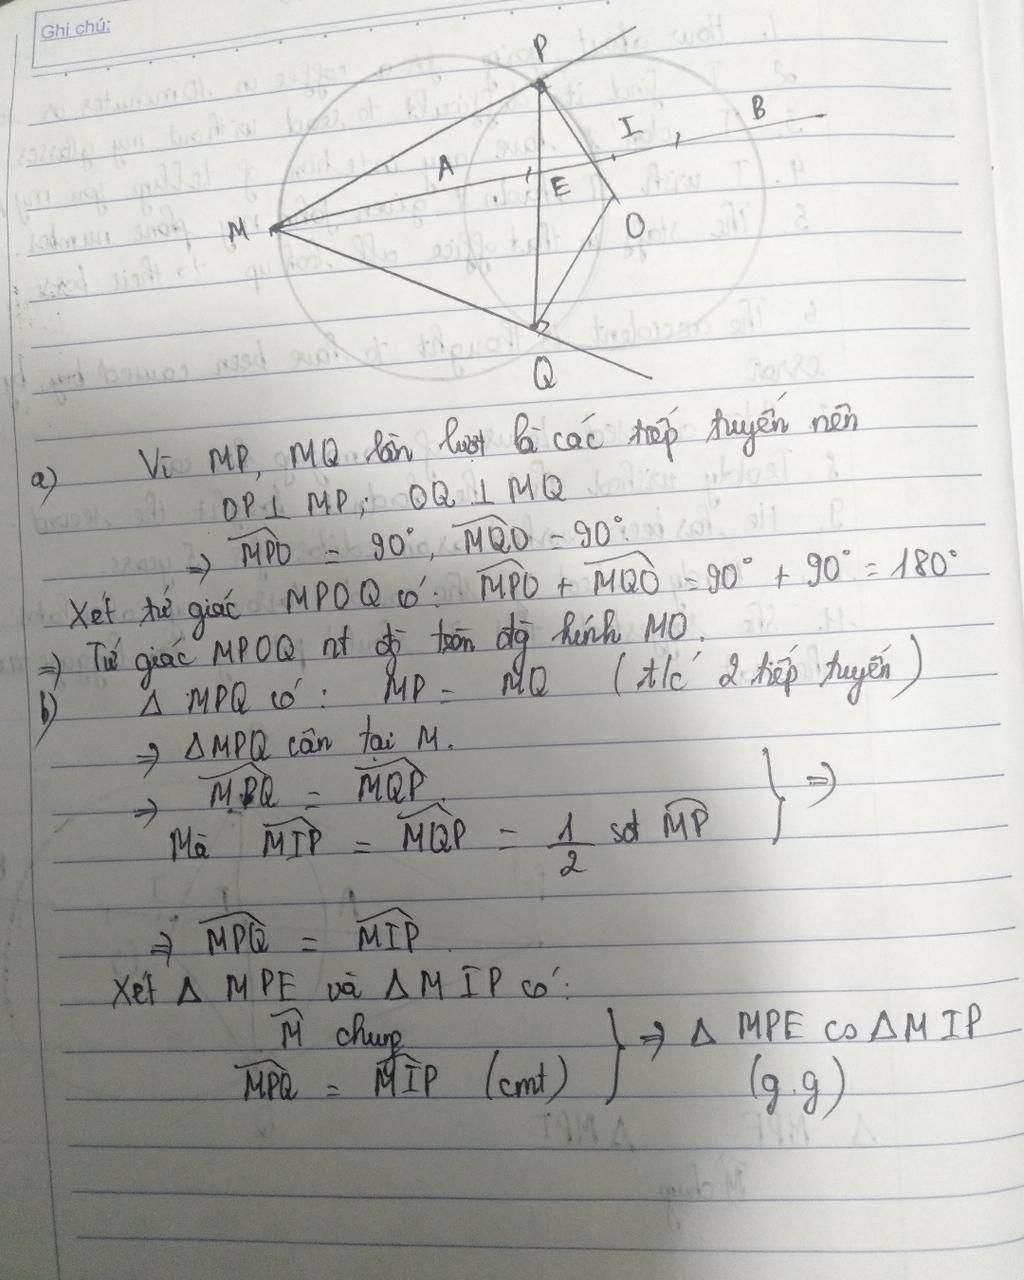 Ghi chú:
P
B
I
A
E
M
O
Q
a) Vì MP, MQ lần lượt là các tiếp tuyến nên
OP ⊥ MP; OQ ⊥ MQ
⇒ \widehat{MPO} = 90°, \widehat{MQO} = 90°.
Xét tứ giác MPOQ có: \widehat{MPO} + \widehat{MQO} = 90° + 90° = 180°
⇒ Tứ giác MPOQ nt đg tròn đg kính MO.
b) Δ MPQ có: MP = MQ (t/c 2 tiếp tuyến)
⇒ ΔMPQ cân tại M.
⇒ \widehat{MPQ} = \widehat{MQP}
Mà \widehat{MIP} = \widehat{MQP} = 1/2 sđ \widehat{MP} } ⇒
⇒ \widehat{MPQ} = \widehat{MIP}
Xét Δ MPE và Δ MIP có:
\widehat{M} chung
\widehat{MPQ} = \widehat{MIP} (cmt) } ⇒ Δ MPE ∽ Δ MIP
(g.g)